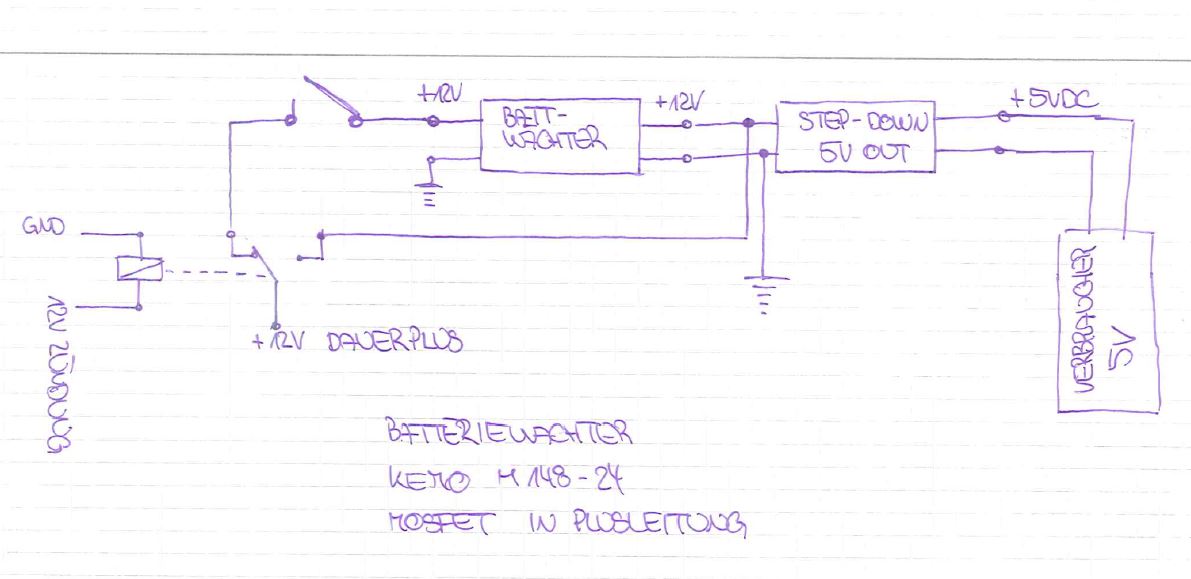 +12V
BATT-
WÄCHTER
+12V
STEP-DOWN
5V OUT
+5VDC
GND
12V ZÜNDUNG
+12V DAUERPLUS
VERBRAUCHER
5V
BATTERIEWÄCHTER
KEMO M148-24
MOSFET IN PLUSLEITUNG